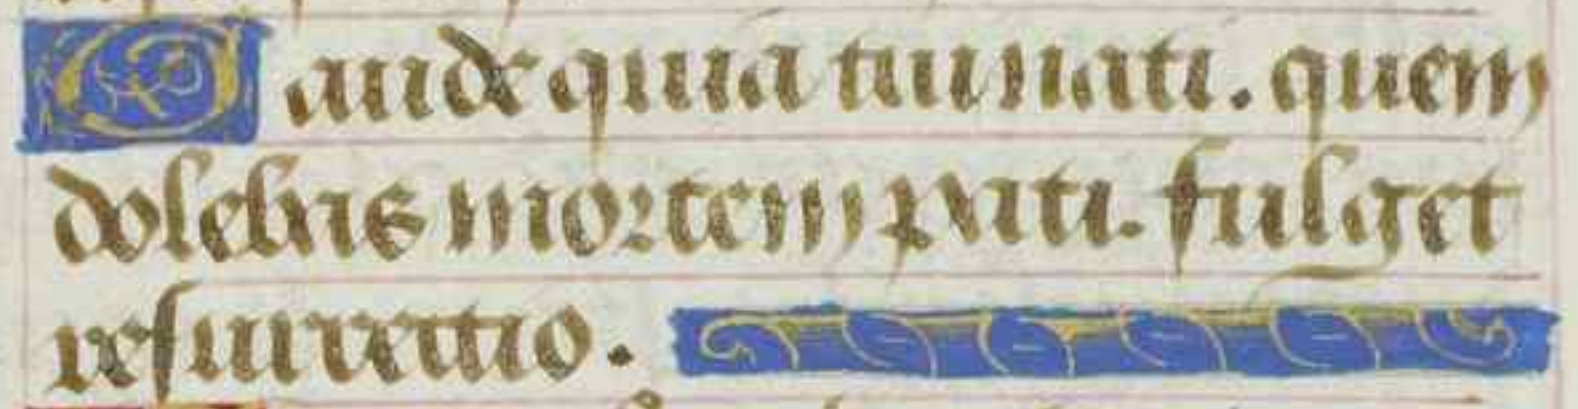 Gaude quia tui nati. quem
dolebas mortem pati. fulget
resurrectio.